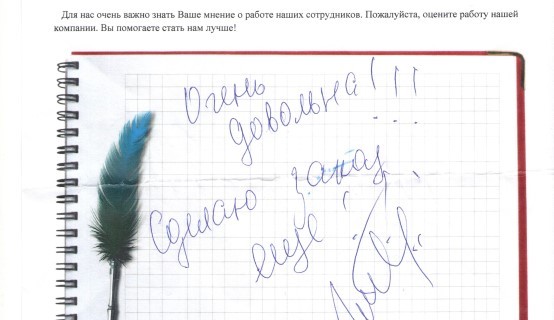 Для нас очень важно знать Ваше мнение о работе наших сотрудников. Пожалуйста, оцените работу нашей
компании. Вы помогаете стать нам лучше!
Очень
довольна!!!
Сделаю заказ
еще!